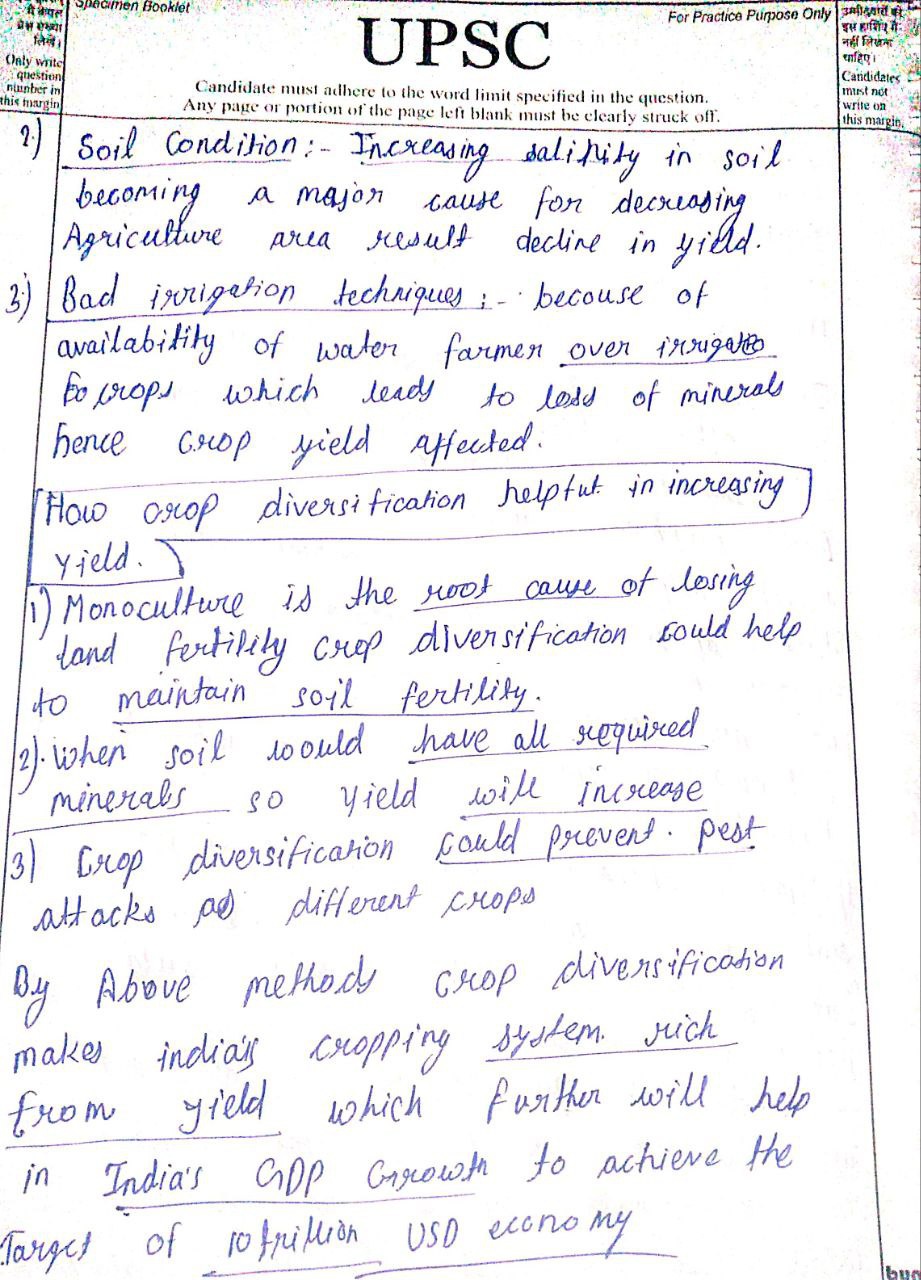 Specimen Booklet
For Practice Purpose Only
UPSC
Candidate must adhere to the word limit specified in the question.
Any page or portion of the page left blank must be clearly struck off.
लिखें।
Only write
question
number in
this margin
उम्मीदवारों को
इस हाशिए में
नहीं लिखना
चाहिए।
Candidates
must not
write on
this margin.
2.) Soil Condition :- Increasing salinity in soil
becoming a major cause for decreasing
Agriculture area result decline in yield.
3.) Bad irrigation techniques :- becouse of
availability of water farmer over irrigate
to crops which leads to loss of minerals
hence crop yield affected.
How crop diversification helpful in increasing
yield.
1) Monoculture is the root cause of losing
land fertility crop diversification could help
to maintain soil fertility.
2). When soil would have all required
minerals so yield will increase
3) Crop diversification could prevent pest
attacks as different crops
By Above methods crop diversification
makes india's cropping system rich
from yield which further will help
in India's GDP Growth to achieve the
Target of 10 trillion USD economy